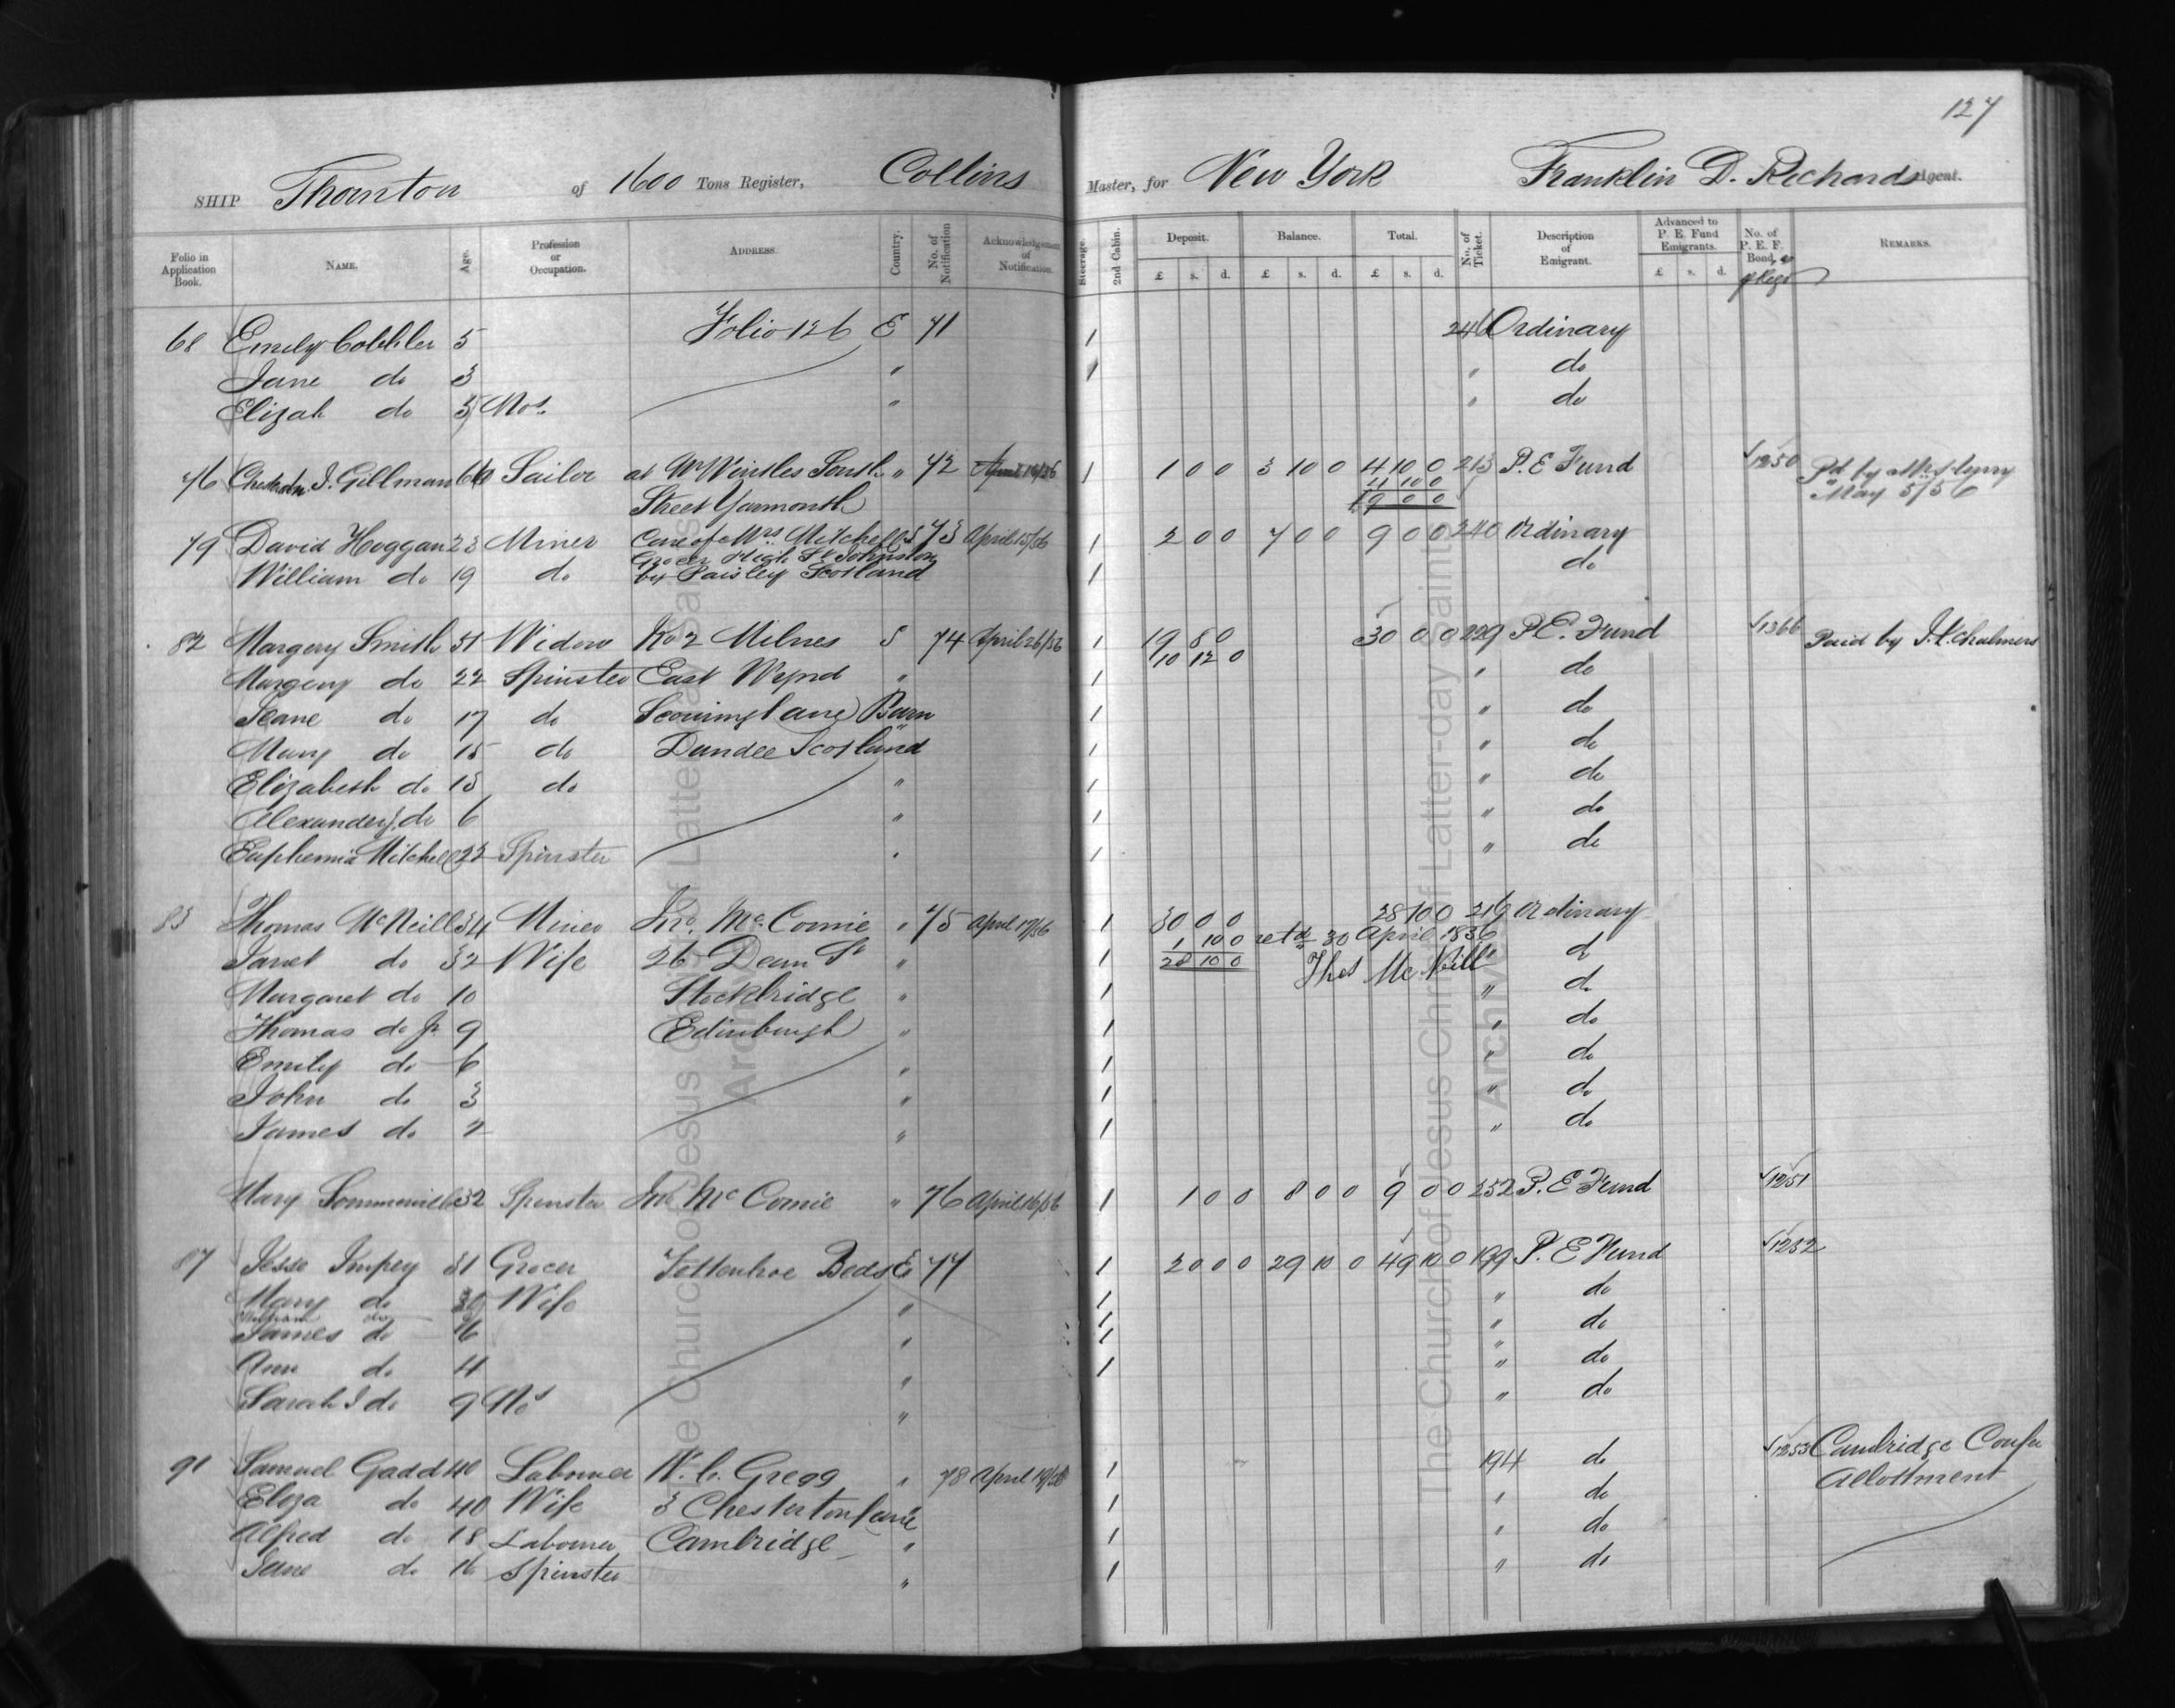 127
SHIP Thornton of 1600 Tons Register, Collins Master, for New York Franklin D. Richards Agent.
Folio in Application Book. NAME. Age. Profession or Occupation. ADDRESS. Country. No. of Notification Acknowledgement of Notification. Steerage. 2nd Cabin. Deposit. £ s. d. Balance. £ s. d. Total. £ s. d. No. of Ticket. Description of Emigrant. Advanced to P. E. Fund Emigrants. £ s. d. No. of P. E. F. Bond, REMARKS.
68 Emily Cobbler 5 Folio 126 E 71 1 246 Ordinary
Jane do 3 " 1 " do
Elizah do Mos. " " do
76 J. Gillman 66 Sailor at W Wintles South " 72 1 1 0 0 3 10 0 4 10 0 213 P. E Fund 1250 Pd by
Street Yarmouth 4 10 0 May 5/56
9 0 0
79 David Hoggan 23 Miner Care of Mrs Mitchell S 73 April 15/56 1 2 0 0 7 0 0 9 0 0 240 Ordinary
Grocer High St Johnston
William do 19 do by Paisley Scotland 1 do
82 Margery Smith 51 Widow No 2 Milnes S 74 April 26/56 1 19 8 0 30 0 0 229 P. E. Fund 1366 Paid by J. K. Chalmers
10 12 0
Margery do 22 Spinster East Wynd " 1 " do
Jeane do 17 do Scouringlane Burn 1 " do
Mary do 15 do Dundee Scotland " 1 " do
Elizabeth do 13 do " 1 " do
Alexander do 6 " 1 " do
Euphemia Mitchell 22 Spinster " 1 " do
83 Thomas McNeill 34 Miner Jno. McComie " 75 April 17/56 1 30 0 0 28 10 0 219 Ordinary
1 10 0 retd 30 April 1856
Janet do 32 Wife 26 Dean St " 1 28 10 0 Thos McNeill " d
Margaret do 10 Stockbridge " 1 " do
Thomas do Jr. 9 Edinburgh " 1 " do
Emily do 6 " 1 " do
John do 3 " 1 " do
James do 2 " 1 " do
Mary Sommerville 32 Spinster Jno McComie " 76 April 16/56 1 1 0 0 8 0 0 9 0 0 252 P. E Fund 1251
87 Jesse Impey 31 Grocer Tottenhoe Beds E 77 1 20 0 0 29 10 0 49 10 0 199 P. E Fund 1232
Mary do 30 Wife " 1 " do
William do
James do 6 " 1 " do
Ann do 4 " 1 " do
Sarah J do 9 Mos " " do
91 Samuel Gadd 40 Labourer W. C. Gregg " 78 April 19/56 1 194 do 1253 Cambridge Confer
Allottment
Eliza do 40 Wife 3 Chesterton Lane 1 " do
Alfred do 18 Labourer Cambridge " 1 " do
Jane do 16 Spinster " 1 " do
The Church of Jesus Christ of Latter-day Saints
Archives
The Church of Jesus Christ of Latter-day Saints
Archives